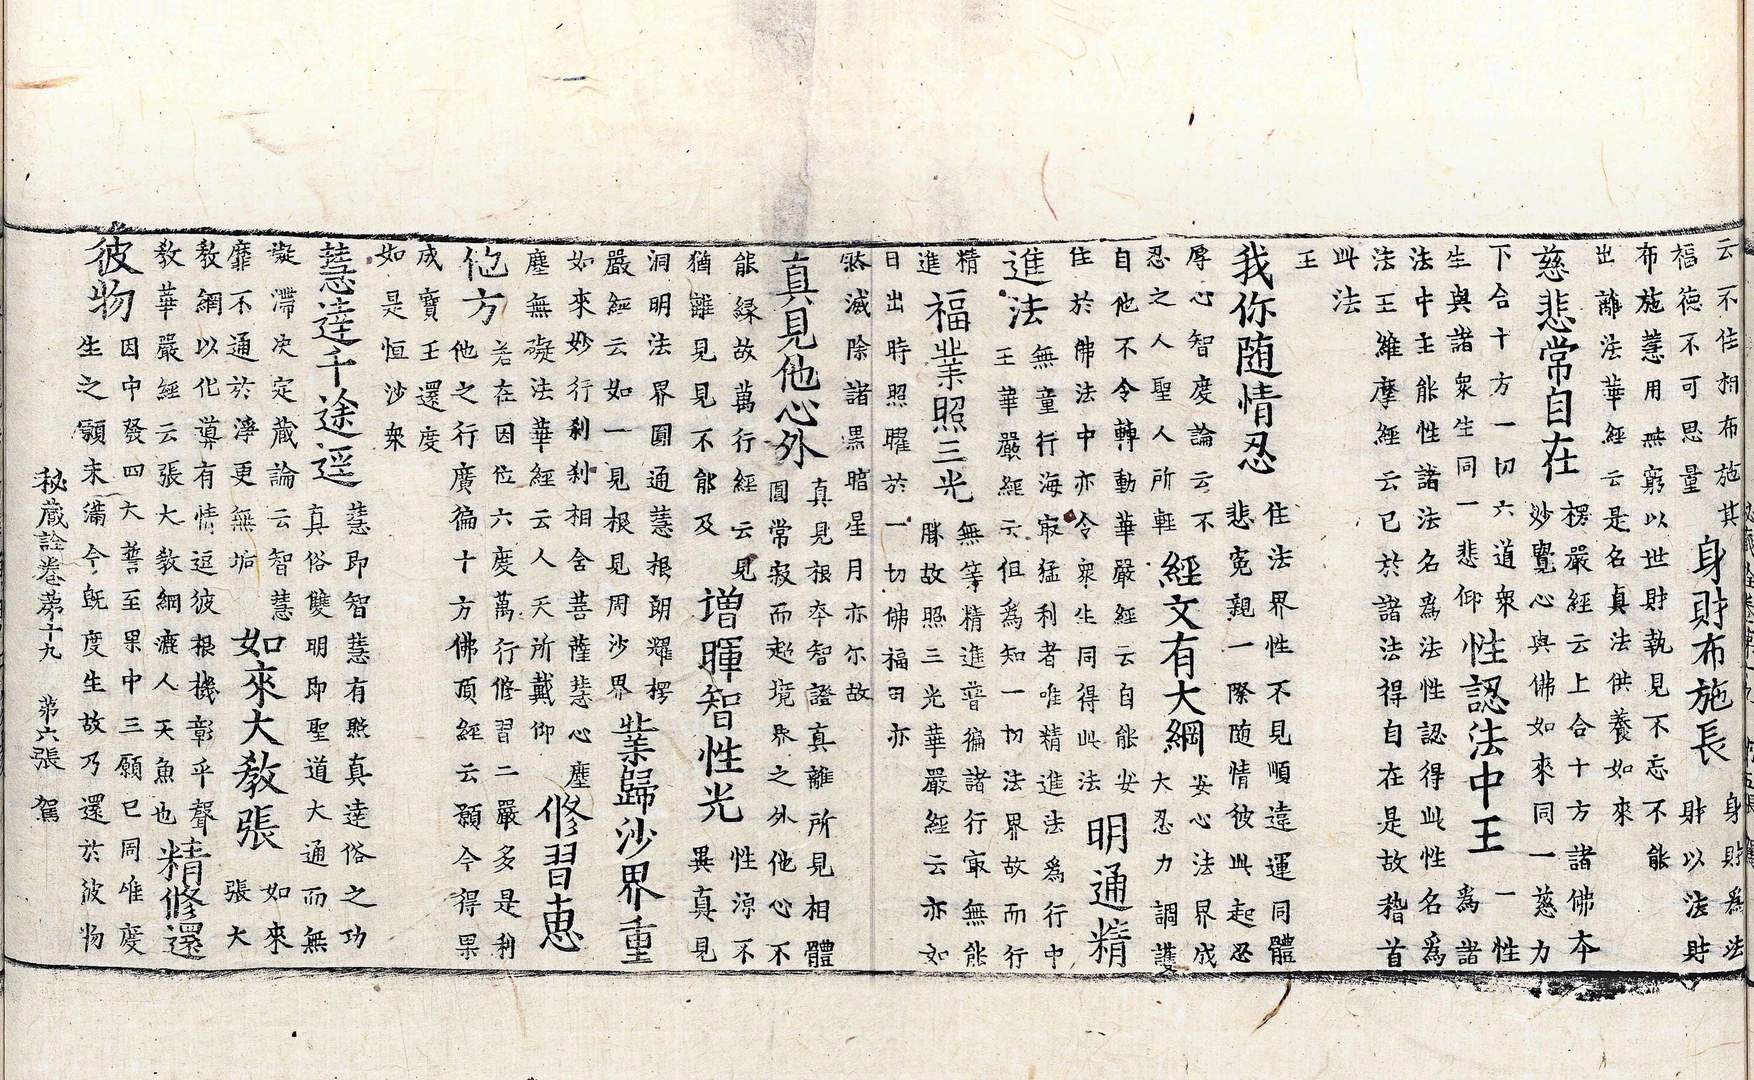 云不住相布施其
福德不可思量
身財布施長
身財爲法
財以法財
布施慧用無窮以世財執見不忘不能
出離法華經云是名真法供養如來
慈悲常自在
楞嚴經云上合十方諸佛本
妙覺心與佛如來同一慈力
下合十方一切六道衆
生與諸衆生同一悲仰
性認法中王
一性
爲諸
法中主能性諸法名爲法性認得此性名爲
法王維摩經云已於諸法得自在是故稽首
此法
王
我你随情忍
住法界性不見順違運同體
悲寃親一際随情彼此起忍
厚心智度論云不
忍之人聖人所輕
經文有大綱
安心法界成
大忍力調護
自他不令轉動華嚴經云自能安
住於佛法中亦令衆生同得此法
明通精
進法
無童行海㝡猛利者唯精進法爲行中
王華嚴經云但爲知一切法界故而行
精
進
福業照三光
無等精進普徧諸行㝡無能
勝故照三光華嚴經云亦如
日出時照曜於一切佛福田亦
然滅除諸黑暗星月亦尒故
真見他心外
真見根本智證真離所見相體
圓常寂而起境界之外他心不
能緣故萬行經云見
猶離見見不能及
增暉智性光
性源不
異真見
洞明法界圓通慧根朗耀楞
嚴經云如一見根見周沙界
業歸沙界重
如來妙行刹刹相舍菩薩慧心塵
塵無礙法華經云人天所戴仰
修習恵
他方
若在因位六度萬行修習二嚴多是利
他之行廣徧十方佛頂經云願今得果
成寶王還度
如是恒沙衆
慧達千途逕
慧即智慧有照真達俗之功
真俗雙明即聖道大通而無
礙滯決定藏論云智慧
靡不通於淨更無垢
如來大教張
如來
張大
教網以化導有情逗彼根機彰乎聲
教華嚴經云張大教網漉人天魚也
精修還
彼物
因中發四大誓至果中三願已周唯度
生之願未滿今既度生故乃還於彼物
秘藏詮卷第十九 第六張 駕